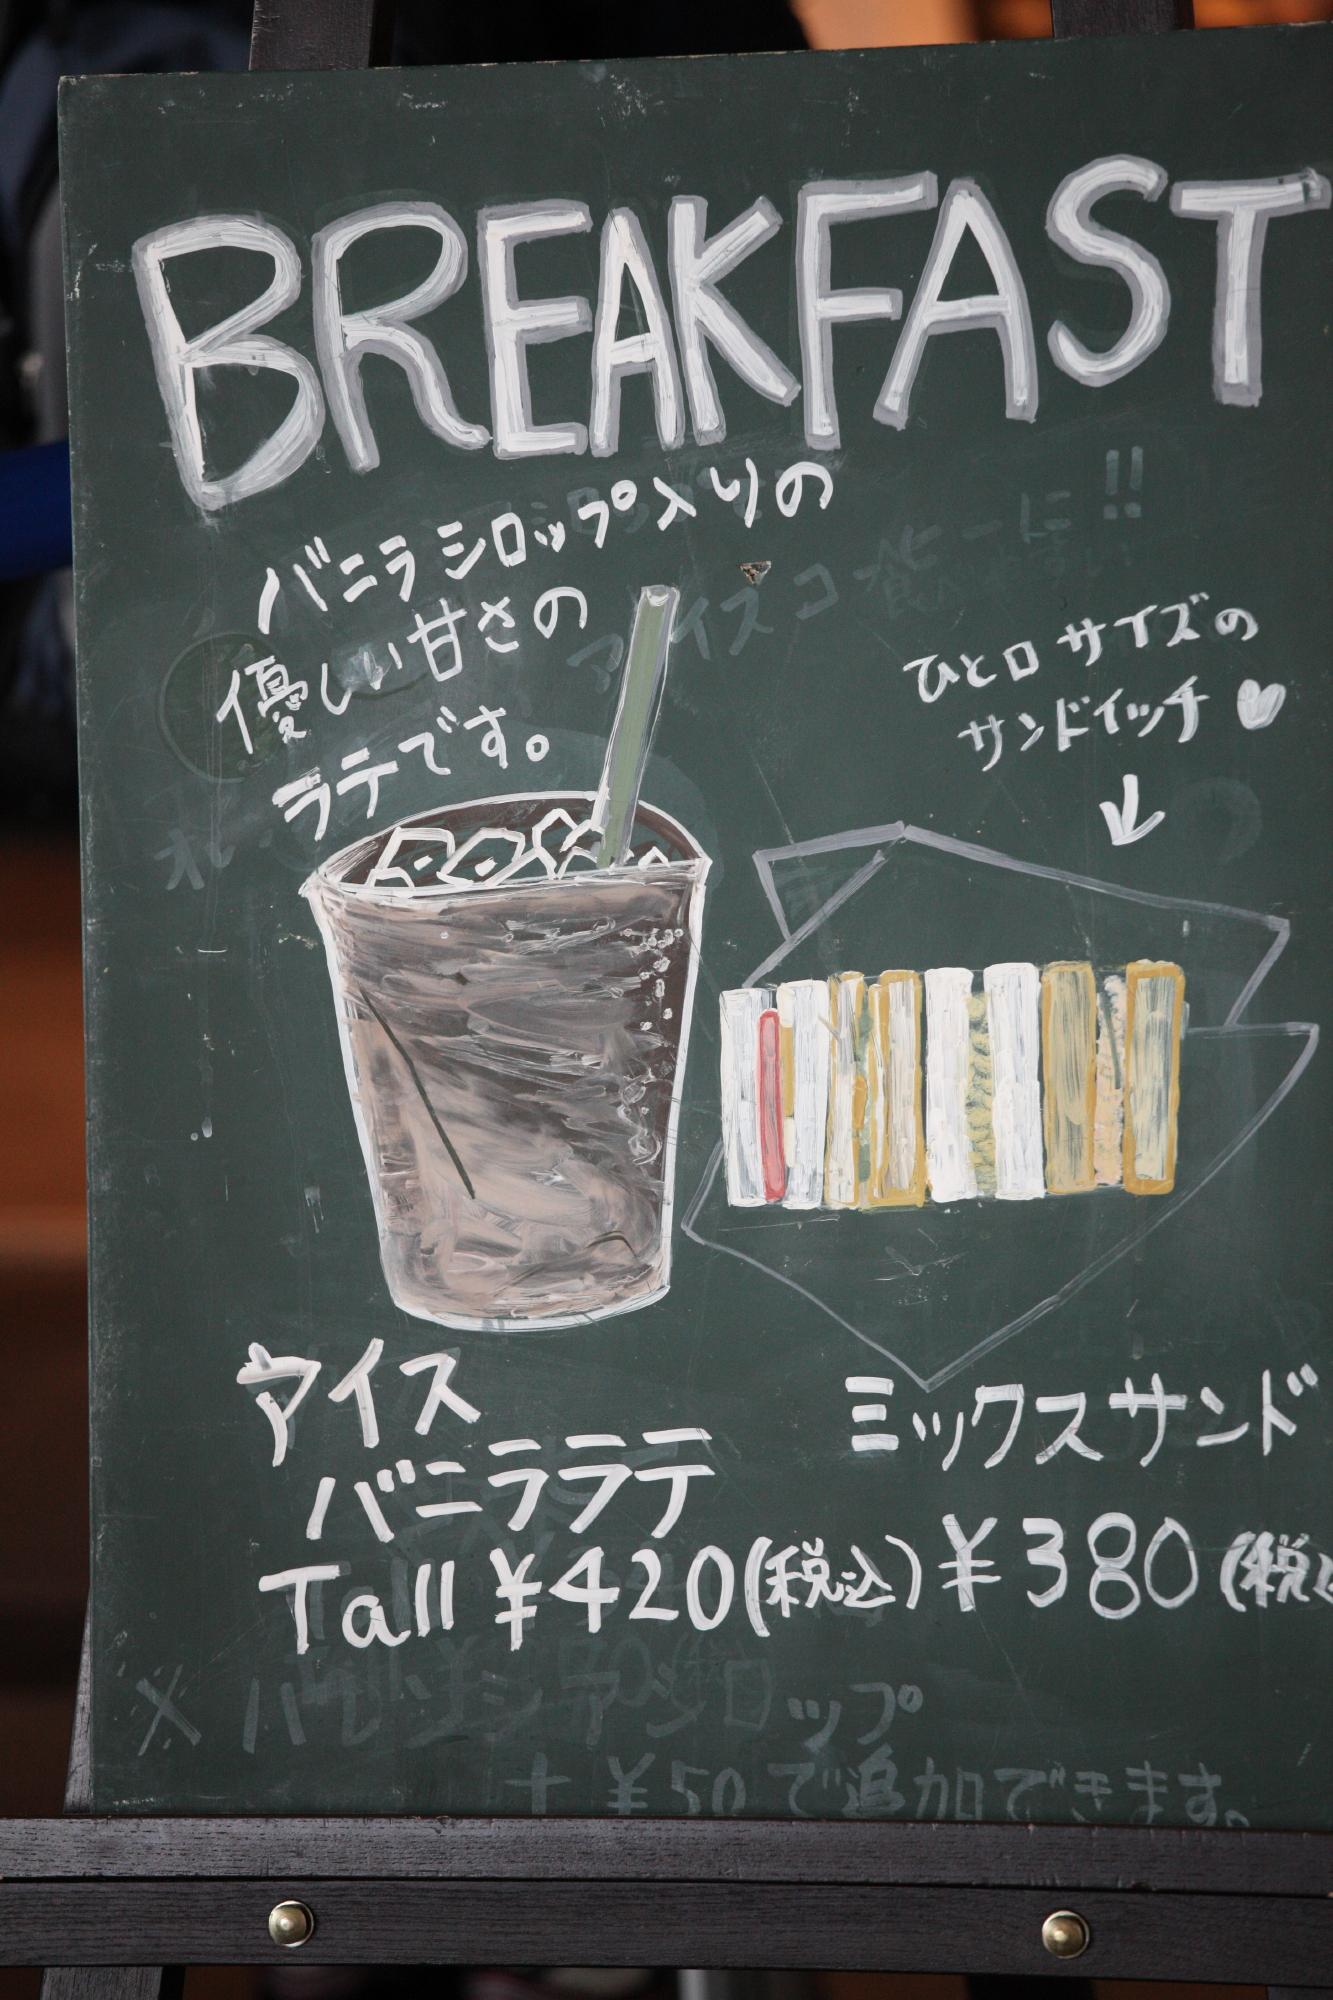 BREAKFAST
バニラシロップ入りの
優しい甘さの
ラテです。
ひと口サイズの
サンドイッチ♥
アイス
バニララテ
Tall ¥420(税込)
ミックスサンド
¥380(税
ップ
+ ¥50で追加できます。